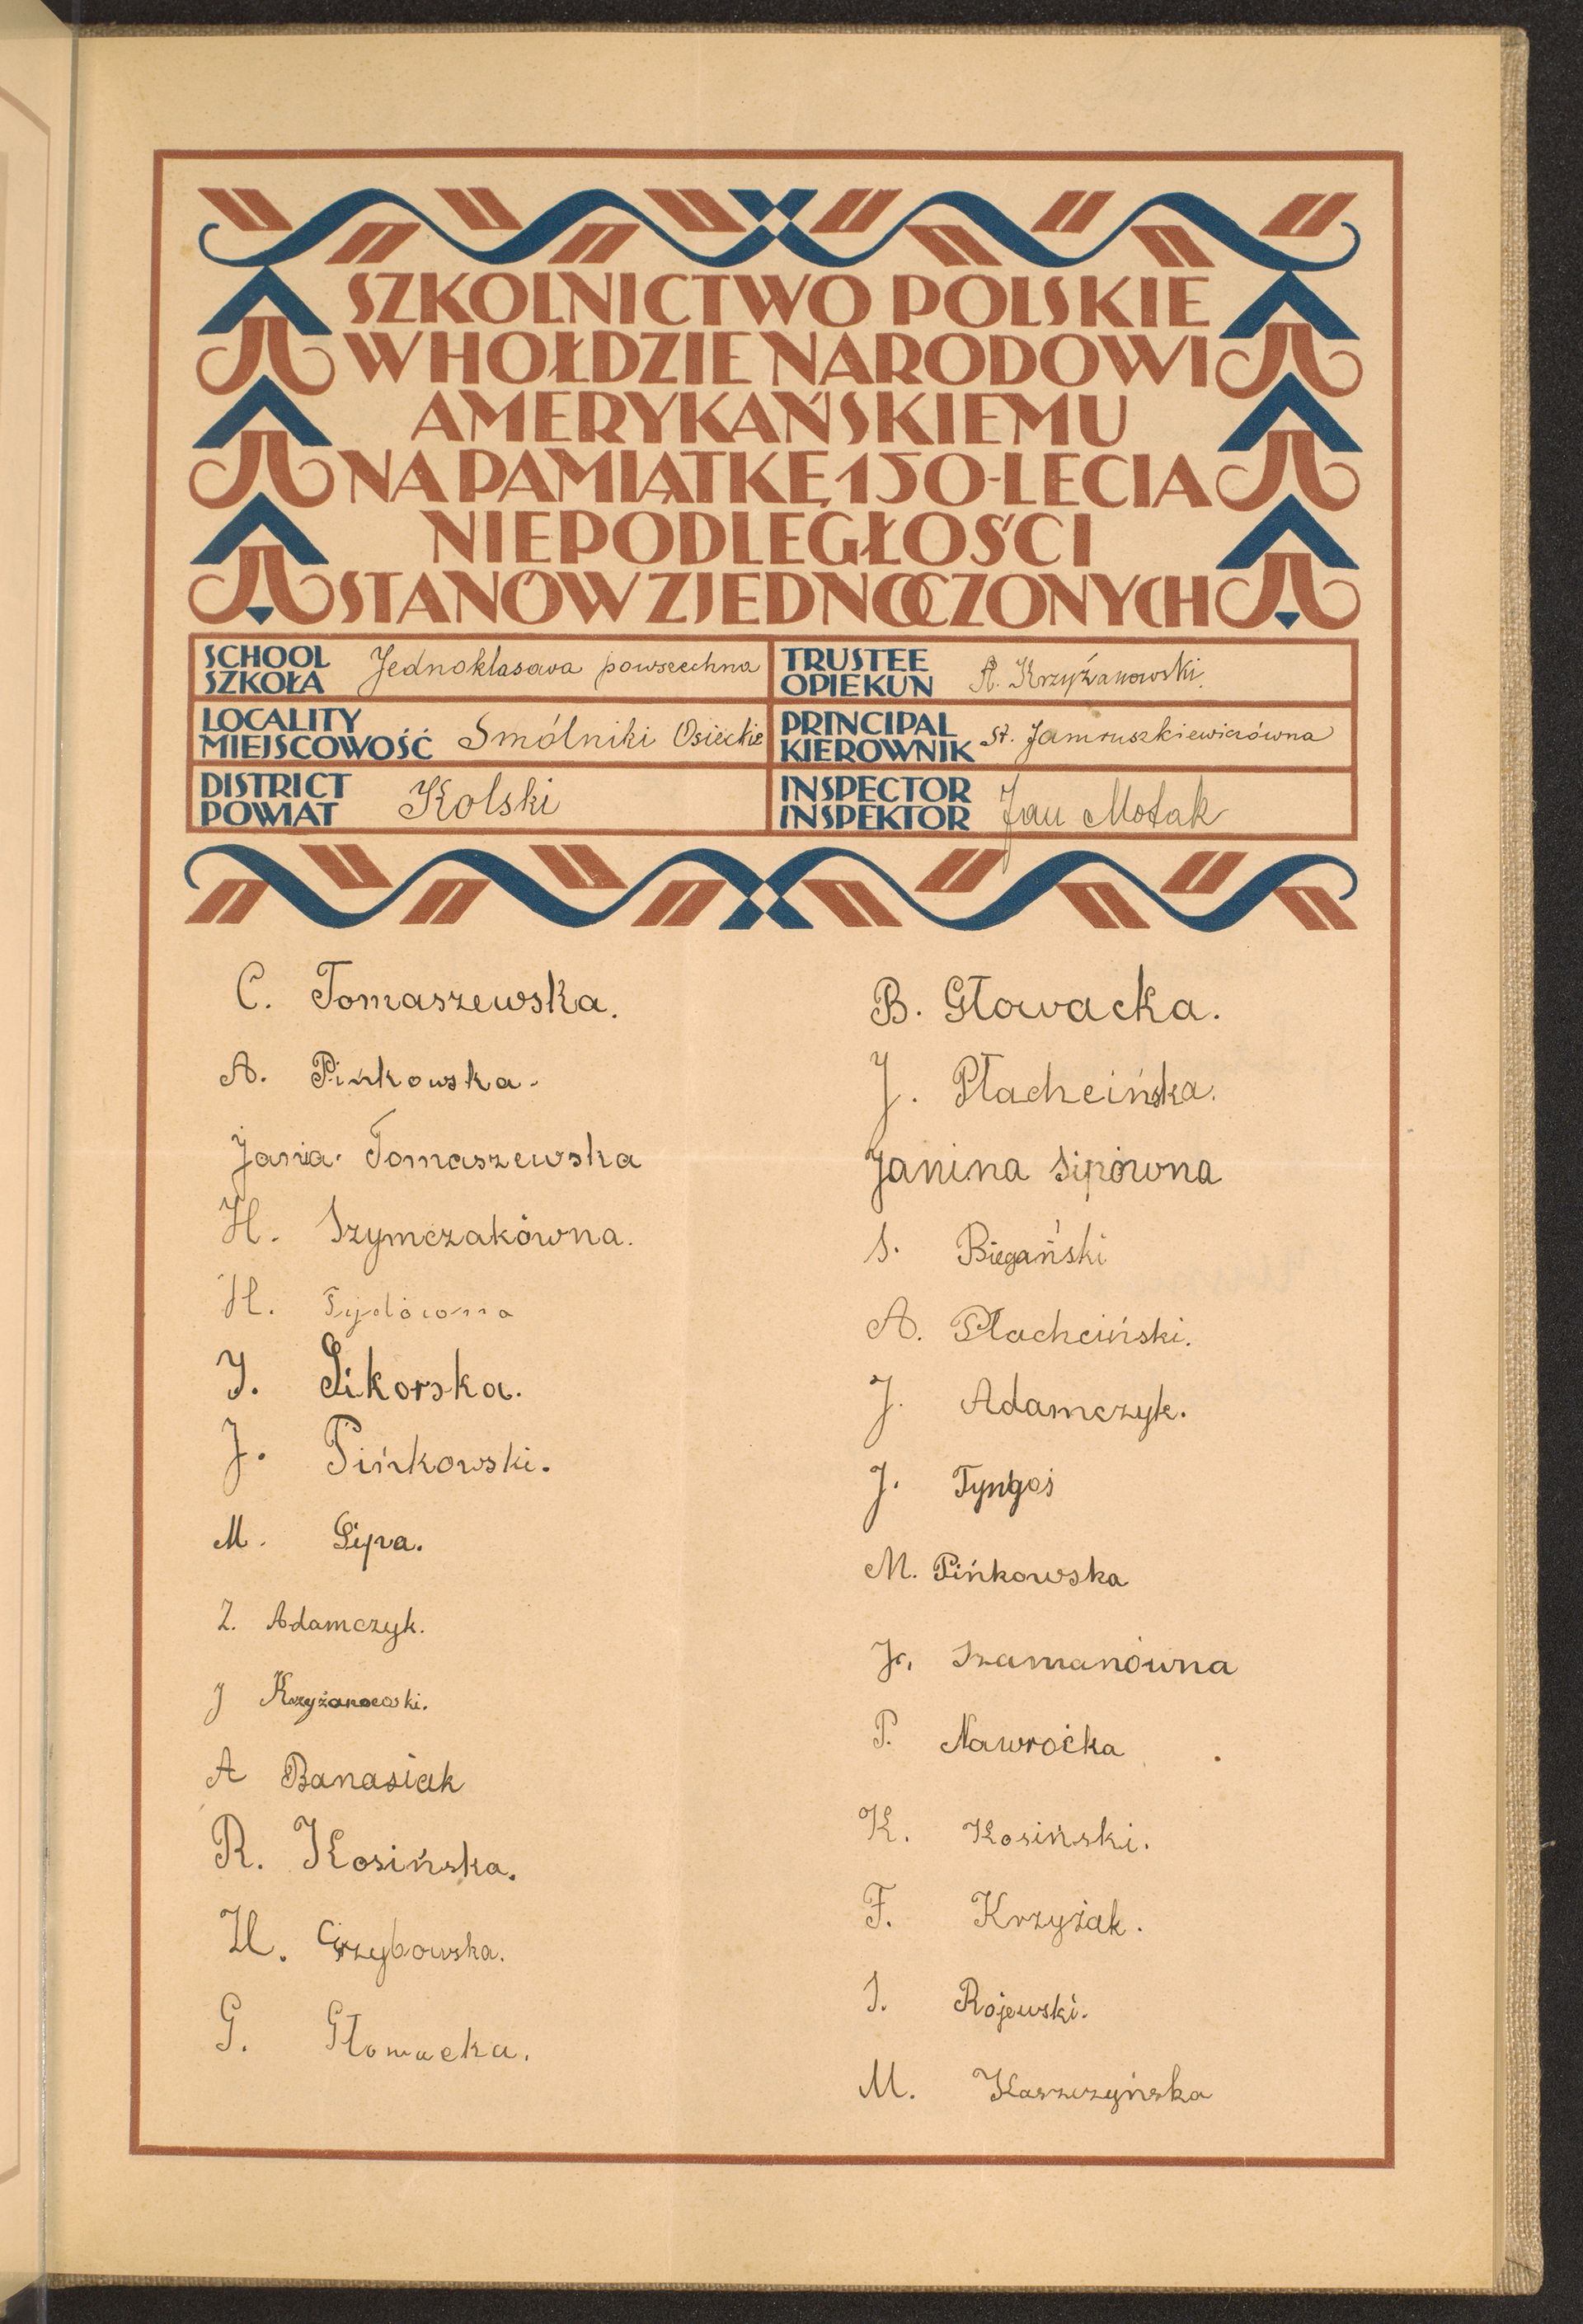 SZKOLNICTWO POLSKIE
W HOŁDZIE NARODOWI
AMERYKAŃSKIEMU
NA PAMIĄTKĘ 150-LECIA
NIEPODLEGŁOŚCI
STANÓW ZJEDNOCZONYCH
SCHOOL
SZKOŁA Jednoklasowa powszechna
TRUSTEE
OPIEKUN A. Krzyżanowski
LOCALITY
MIEJSCOWOŚĆ Smólniki Osieckie
PRINCIPAL
KIEROWNIK St. Jamruszkiewiczówna
DISTRICT
POWIAT Kolski
INSPECTOR
INSPEKTOR Jan Motak
C. Tomaszewska.
A. Pińkowska.
Jania. Tomaszewska
H. Szymczakówna.
H.
J. Sikorska.
J. Pińkowski.
M. Sipa.
Z. Adamczyk.
J Krzyżanowski.
A Banasiak
R. Kosińska.
H. Grzybowska.
G. Głowacka.
B. Głowacka.
J. Płachcińska.
Janina Sipówna
S. Biegański
A. Płachciński.
J. Adamczyk.
J.
M. Pińkowska
J. Szamanówna
P. Nawrocka
K. Kosiński.
F. Krzyżak.
S. Rojewski.
M. Kaszczyńska